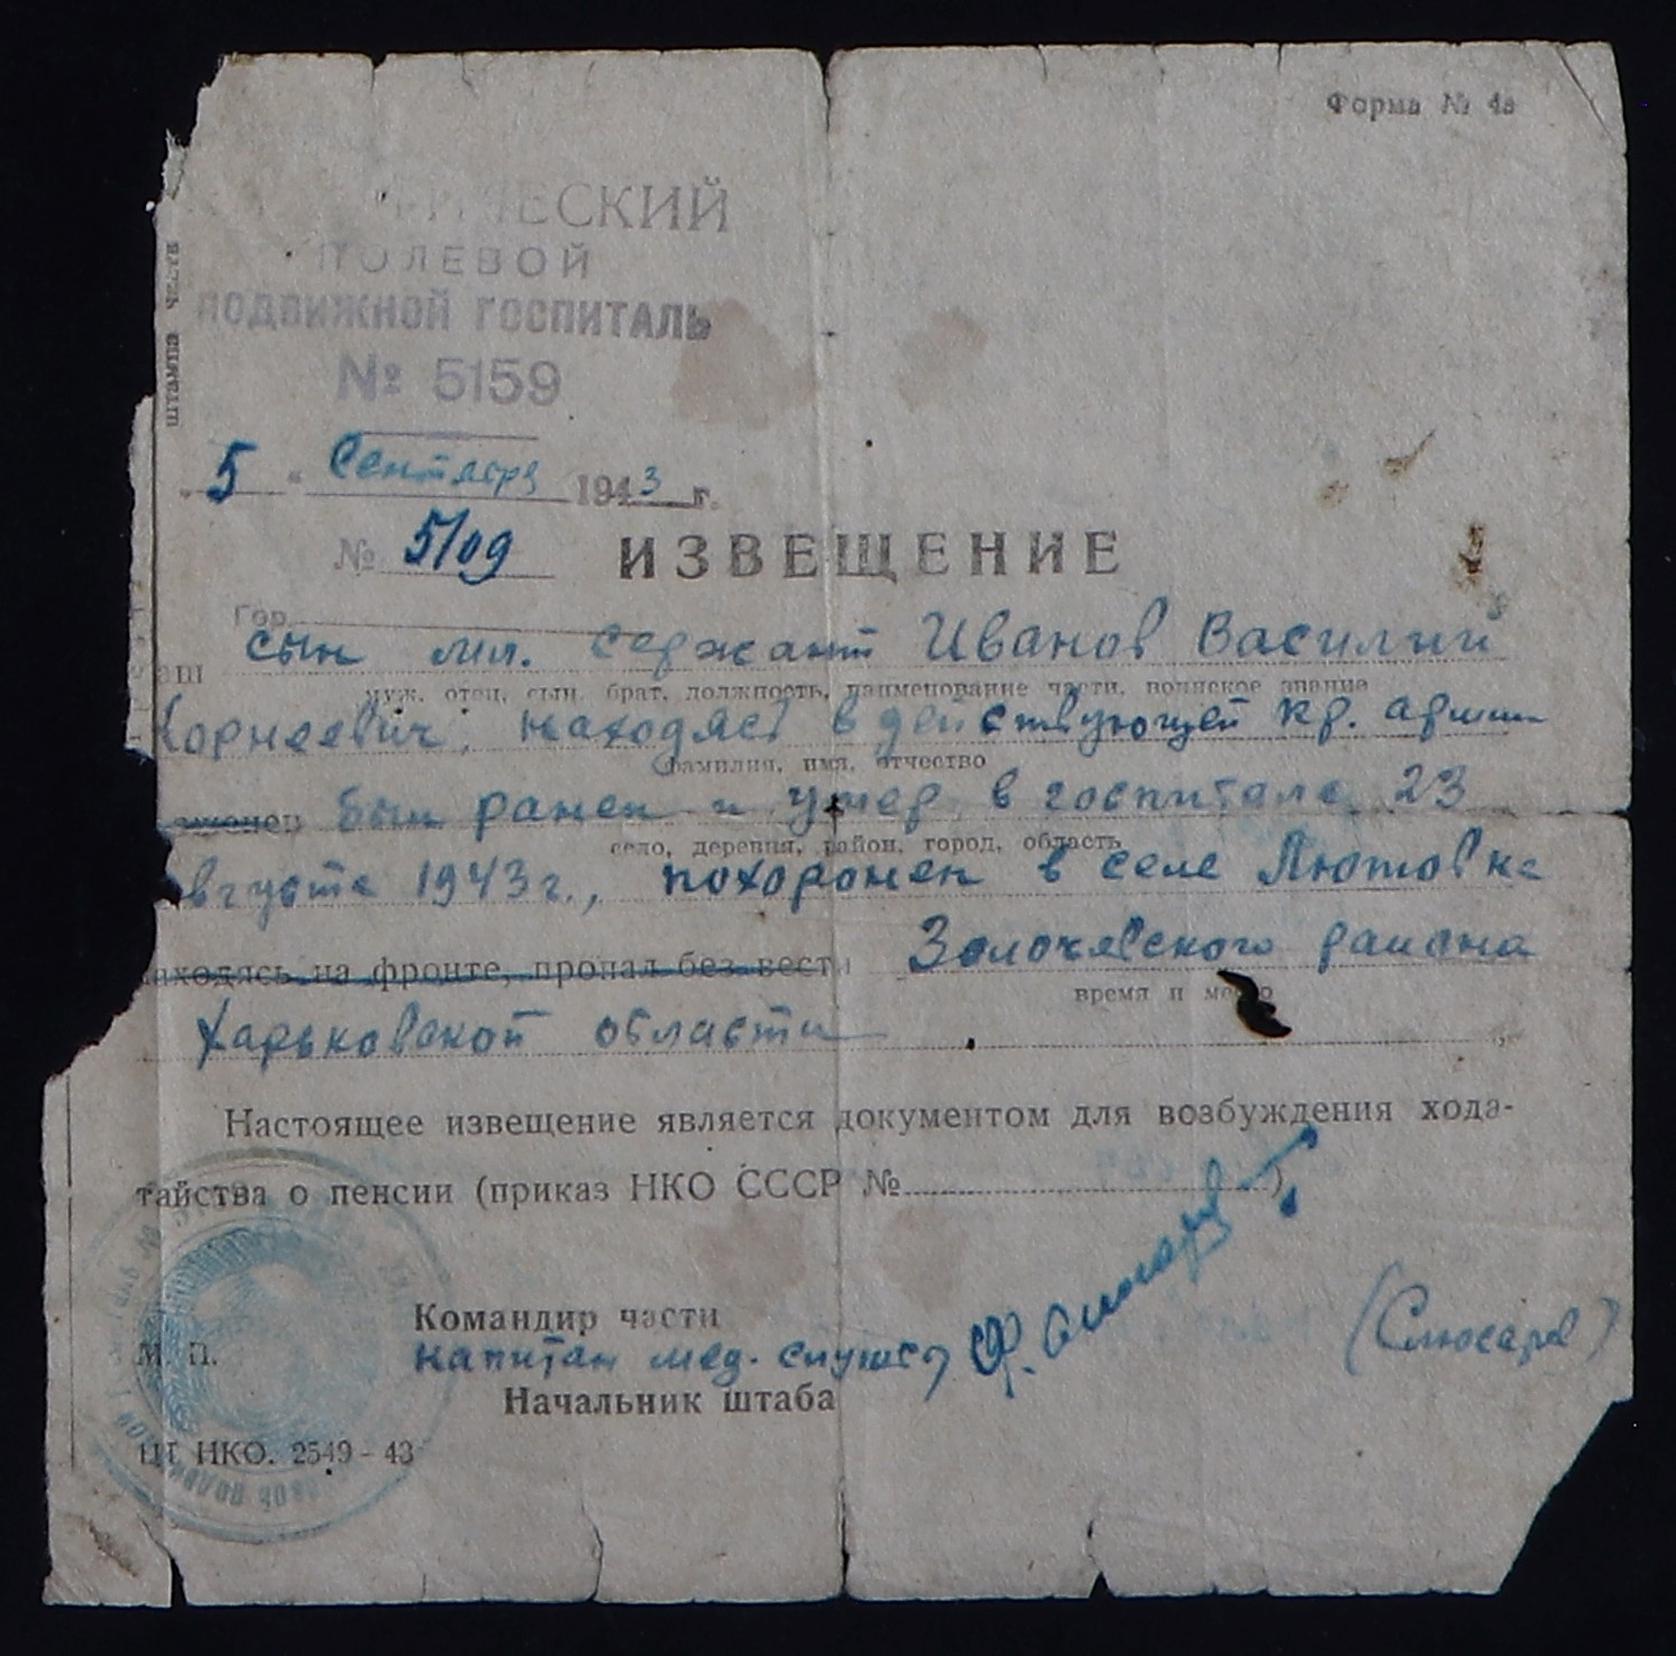 Форма № 4а
ЧЕСКИЙ
ПОЛЕВОЙ
ПОДВИЖНОЙ ГОСПИТАЛЬ
№ 5159
"5" Сентября 1943 г.
№ 5/09 ИЗВЕЩЕНИЕ
Гор.
аш сын мл. сержант Иванов Василий
муж, отец, сын, брат, должность, наименование части, воинское звание
Корнеевич, находясь в действующей кр. армии
фамилия, имя, отчество
был ранен и умер в госпитале 23
село, деревня, район, город, область
августа 1943 г., похоронен в селе Лютовка
находясь на фронте, пропал без вести Золочевского района
время и место
Харьковской области
Настоящее извещение является документом для возбуждения хода-
тайства о пенсии (приказ НКО СССР № )
Командир части
М. П. капитан мед. службы (Слюсарев)
Начальник штаба
НКО. 2549-43
штампа часть